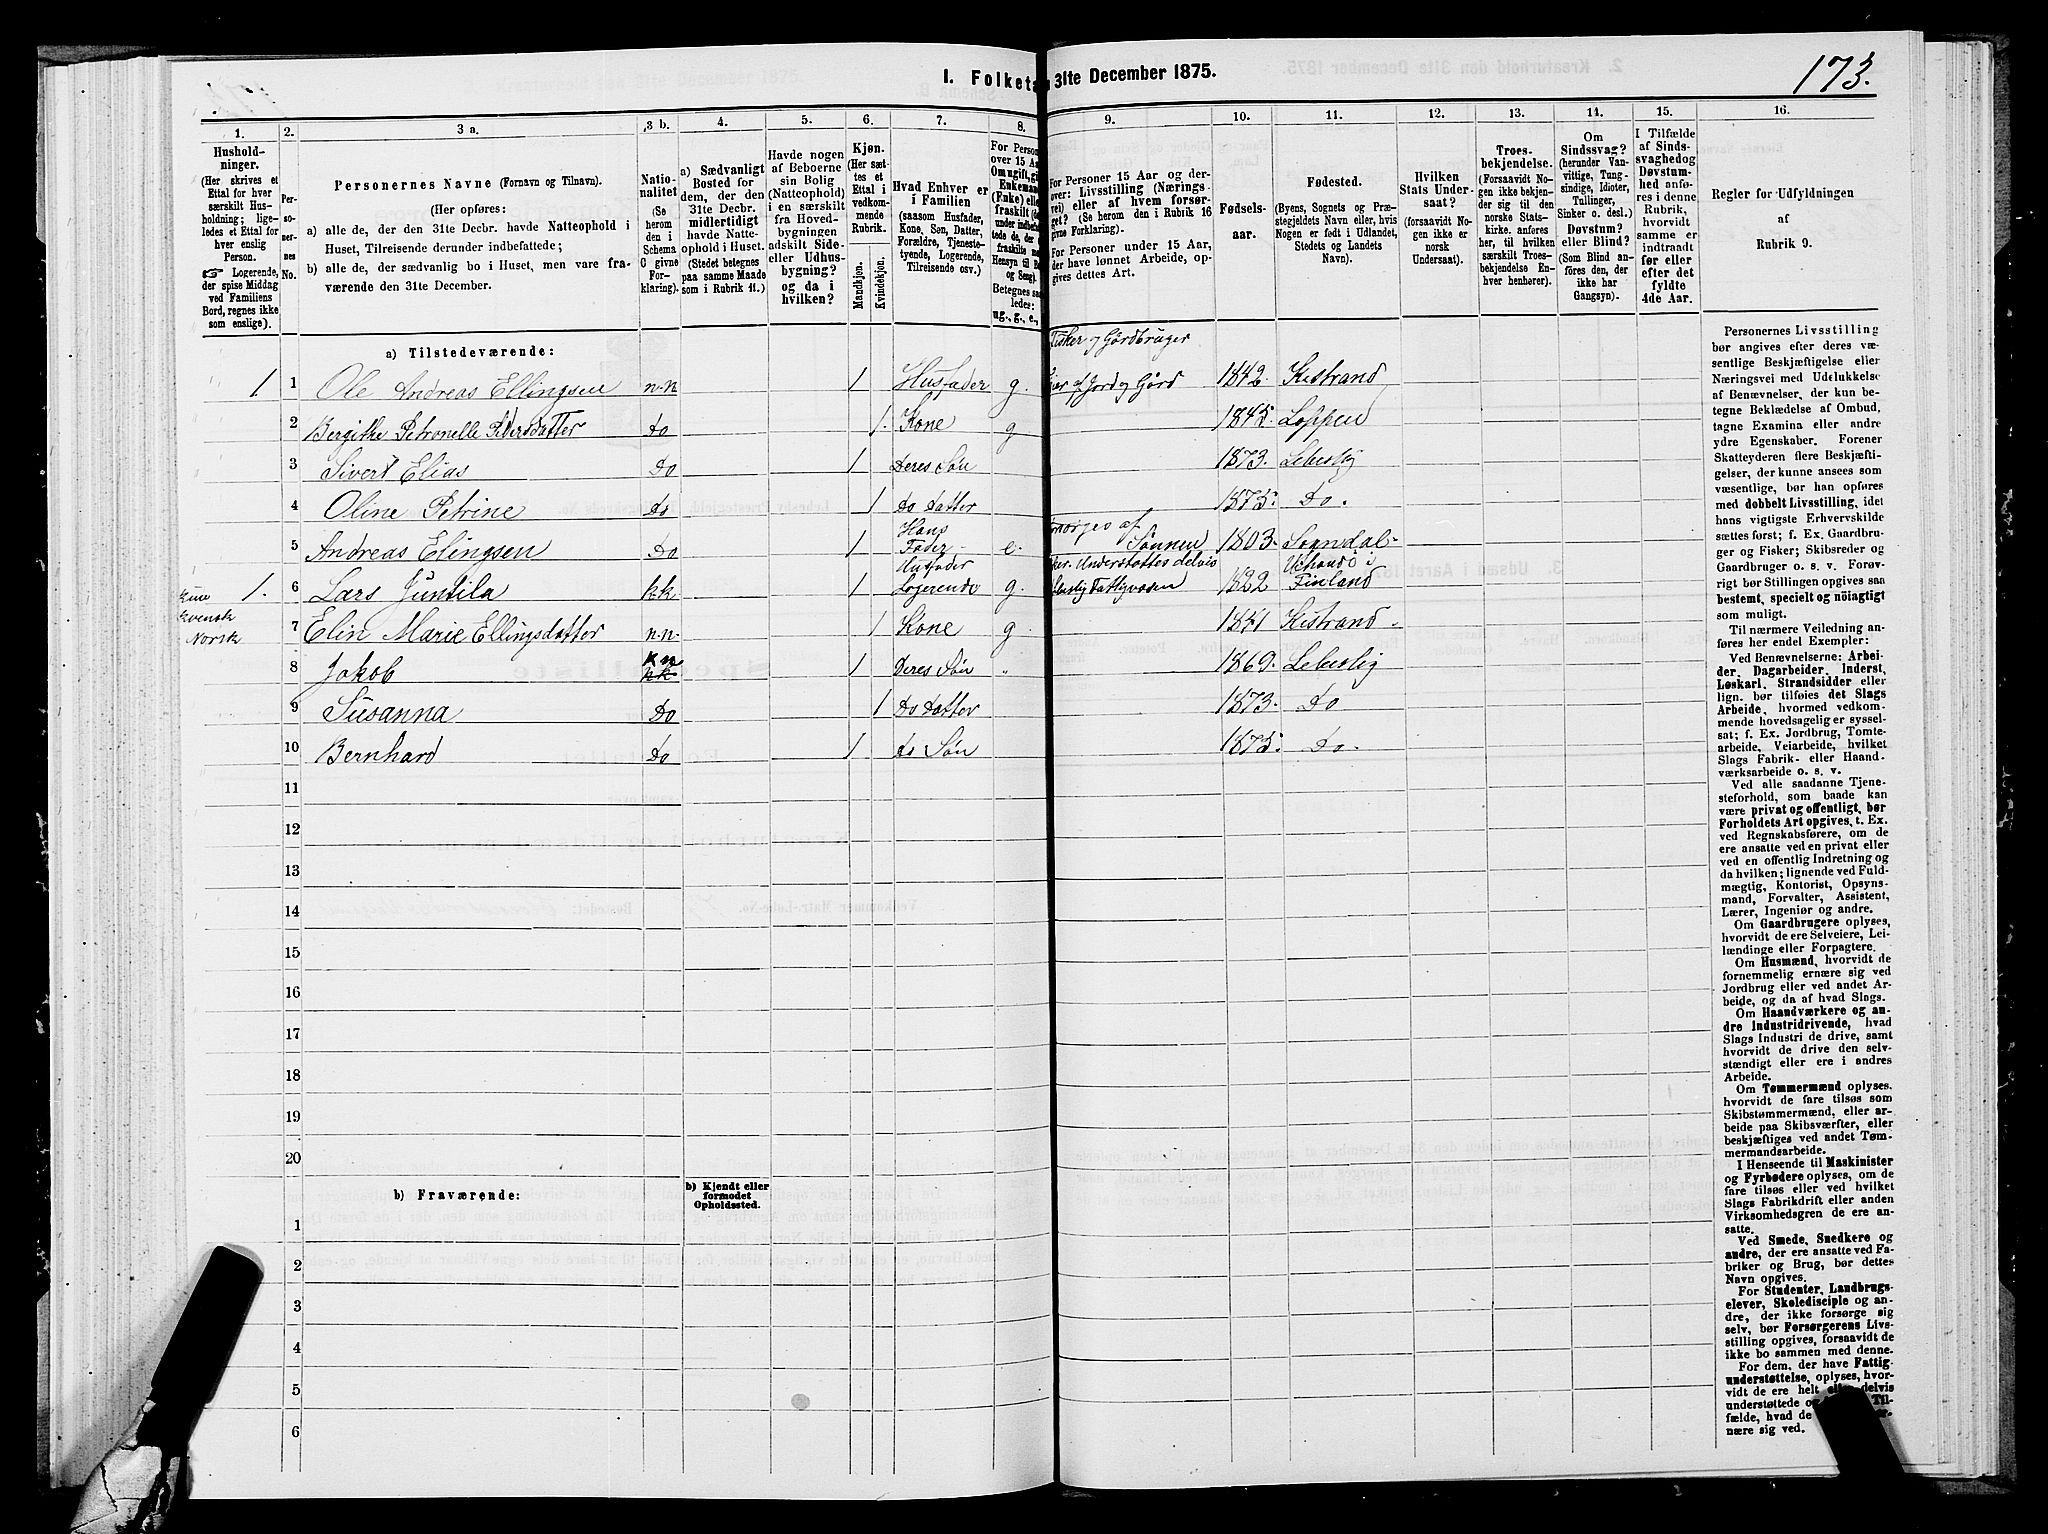 173.
I. Folketæ 31te December 1875.
1. 2. 3 a. 3 b. 4. 5. 6. 7. 8. 9. 10. 11. 12. 13. 14. 15. 16.
Husholdninger.
(Her skrives et
Ettal for hver
særskilt Husholdning; ligeledes
et Ettal for
hver enslig
Person.
☞ Logerende,
der spise Middag
ved Familiens
Bord, regnes ikke
som enslige).
Personernes No.
Personernes Navne (Fornavn og Tilnavn).
(Her opføres:
a) alle de, der den 31te Decbr. havde Natteophold i
Huset, Tilreisende derunder indbefattede;
b) alle de, der sædvanlig bo i Huset, men vare fraværende
den 31te December.
Nationalitet
(Se
herom
den i
Schema
C givne
Forklaring).
a) Sædvanligt
Bosted for
dem, der den
31te Decbr.
midlertidigt
havde Natteophold
i Huset.
(Stedet betegnes
paa samme Maade
som i Rubrik 11.)
Havde nogen
af Beboerne
sin Bolig
(Natteophold)
i en særskilt
fra Hovedbygningen
adskilt Side-
eller Udhusbygning?
og da i
hvilken?
Kjøn.
(Her sættes
et
Ettal i
vedkommende
Rubrik.
Mandkjøn.
Kvindekjøn.
Hvad Enhver er
i Familien
(saasom Husfader,
Kone, Søn, Datter,
Forældre, Tjenestetyende,
Logerende,
Tilreisende osv.)
For Person
over 15 Aa
Betegnes
ledes:
ug., g., e.,
For Personer 15 Aar og derover:
Livsstilling (Næringsvei)
eller af hvem forsørget?
(Se herom den i Rubrik 16
givne Forklaring).
For Personer under 15 Aar,
der have lønnet Arbeide, opgives
dettes Art.
Fødselsaar.
Fødested.
(Byens, Sognets og Præstegjeldets
Navn eller, hvis
Nogen er født i Udlandet,
Stedets og Landets
Navn).
Hvilken
Stats Undersaat?
(forsaavidt Nogen
ikke er
norsk
Undersaat).
Troesbekjendelse.
(Forsaavidt Nogen
ikke bekjender
sig til den
norske Statskirke.
anføres
her, til hvilken
særskilt Troesbekjendelse
Enhver
henhører).
Om
Sindssvag?
(herunder Vanvittige,
Tungsindige,
Idioter,
Tullinger,
Sinker o. desl.)
Døvstum?
eller Blind?
(Som Blind anføres
den, der
ikke har
Gangsyn).
I Tilfælde
af Sindssvaghed
og
Døvstumhed
anføres
i denne
Rubrik,
hvorvidt
samme er
indtraadt
før eller
efter det
fyldte
4de Aar.
Regler for Udfyldningen
af
Rubrik 9.
a) Tilstedeværende:
Fisker og Gårdbruger
1 1 Ole Andreas Ellingsen n.n 1 Husfader g. Eier af Jord og Gård 1842. Kistrand
2 Bergithe Petronelle Petersdatter Do 1. Kone g 1845. Loppen
3 Sivert Elias Do 1 Deres Søn 1873. Lebesby
4 Oline Petrine Do 1 Do Datter 1875. Do.
5 Andreas Elingsen Do 1 Hans Fader e. Sønnen 1803. Sogndal
kun kvensk Norsk
1. 6 Lars Juntila k.k 1 Husfader Logerende g. Understøttes delvis Fattigvæsen 1822 Finland
7 Elin Marie Ellingsdatter n.n. 1 Kone g 1841 Kistrand
8 Jakob k n 1 Deres Søn " 1869. Lebesby
9 Susanna Do 1 Do Datter 1873. Do
10 Bernhard Do 1 do Søn 1875. Do.
11
12
13
14
15
16
17
18
19
20
b) Fraværende:
b) Kjendt eller
formodet
Opholdssted.
1
2
3
4
5
6
Personernes Livsstilling
bør angives efter deres væsentlige
Beskjæftigelse eller
Næringsvei med Udelukkelse
af Benævnelser, der kun betegne
Beklædelse af Ombud,
tagne Examina eller andre
ydre Egenskaber. Forener
Skatteyderen flere Beskjæftigelser,
der kunne ansees som
væsentlige, bør han opføres
med dobbelt Livsstilling, idet
hans vigtigste Erhvervskilde
sættes først; f. Ex. Gaardbruger
og Fisker; Skibsreder og
Gaardbruger o. s. v. Forøvrigt
bør Stillingen opgives saa
bestemt, specielt og nøiagtigt
som muligt.
Til nærmere Veiledning anføres
her endel Exempler:
Ved Benævnelserne: Arbeider,
Dagarbeider, Inderst,
Løskarl, Strandsidder eller
lign. bør tilføies det Slags
Arbeide, hvormed vedkommende
hovedsagelig er sysselsat;
f. Ex. Jordbrug, Tomtearbeide,
Veiarbeide, hvilket
Slags Fabrik- eller Haandværksarbeide
o. s. v.
Ved alle saadanne Tjenesteforhold,
som baade kan
være privat og offentligt, bør
Forholdets Art opgives, t. Ex.
ved Regnskabsførere, om de
ere ansatte ved en privat eller
ved en offentlig Indretning og
da hvilken; lignende ved Fuldmægtig,
Kontorist, Opsynsmand,
Forvalter, Assistent,
Lærer, Ingeniør og andre.
Om Gaardbrugere oplyses,
hvorvidt de ere Selveiere, Leilændinge
eller Forpagtere.
Om Husmænd, hvorvidt de
fornemmelig ernære sig ved
Jordbrug eller ved andet Arbeide,
og da af hvad Slags.
Om Haandværkere og andre
Industridrivende, hvad
Slags Industri de drive, samt
hvorvidt de drive den selvstændigt
eller ere i andres
Arbeide.
Om Tømmermænd oplyses,
hvorvidt de fare tilsøs som
Skibstømmermænd, eller arbeide
paa Skibsværfter, eller
beskjæftiges ved andet Tømmermandsarbeide.
I Henseende til Maskinister
og Fyrbødere oplyses, om de
fare tilsøs eller ved hvilket
Slags Fabrikdrift eller anden
Virksomhedsgren de ere ansatte.
Ved Smede, Snedkere og
andre, der ere ansatte ved Fabriker
og Brug, bør dettes
Navn opgives.
For Studenter, Landbrugselever,
Skoledisciple og andre,
der ikke forsørge sig
selv, bør Forsørgerens Livsstilling
opgives, forsaavidt de
ikke bo sammen med denne.
For dem, der have Fattigunderstøttelse,
oplyses, hvorvidt
de ere helt eller delvis
understøttede